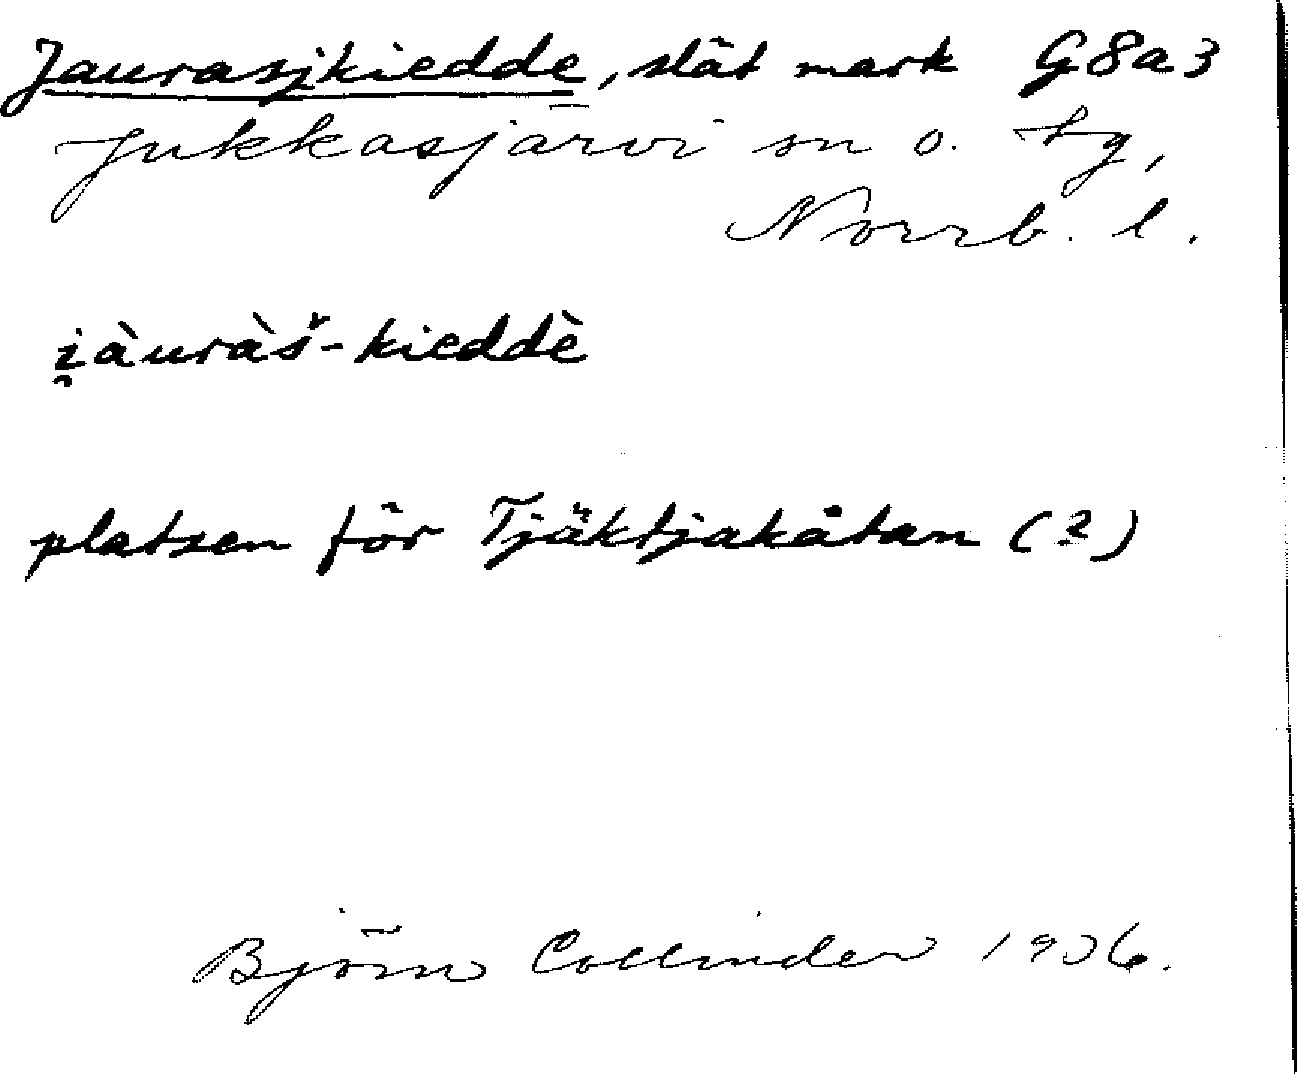 Jaurasjkiedde, slät mark G8a3
Jukkasjärvi sn o. tg,
Norrb. l.
i̯àuràš-kieddè
platsen för Tjäktjakåtan (?)
Björn Collinder 1936.